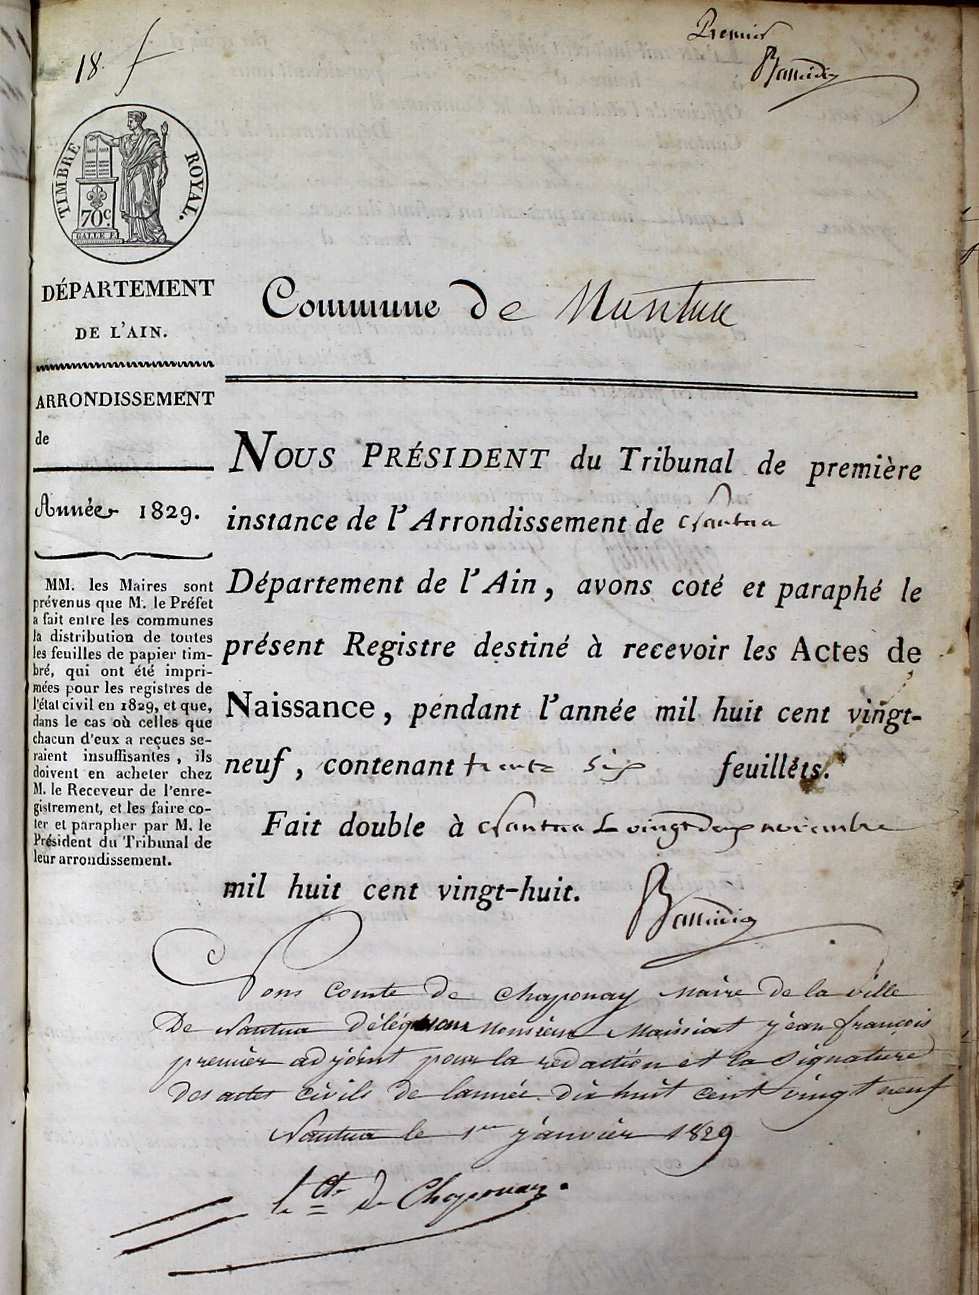 18. f
Premier
TIMBRE ROYAL.
70.c
GALLE F.
DÉPARTEMENT
DE L'AIN.
ARRONDISSEMENT
de
Année 1829.
MM. les Maires sont
prévenus que M. le Préfet
a fait entre les communes
la distribution de toutes
les feuilles de papier tim-
bré, qui ont été impri-
mées pour les registres de
l'état civil en 1829, et que,
dans le cas où celles que
chacun d'eux a reçues se-
raient insuffisantes, ils
doivent en acheter chez
M. le Receveur de l'enre-
gistrement, et les faire co-
ter et parapher par M. le
Président du Tribunal de
leur arrondissement.
Commune De Nantua
NOUS PRÉSIDENT du Tribunal de première
instance de l'Arrondissement de Nantua
Département de l'Ain, avons coté et paraphé le
présent Registre destiné à recevoir les Actes de
Naissance, pendant l'année mil huit cent vingt-
neuf, contenant trente six feuillets.
Fait double à Nantua le vingt deux novembre
mil huit cent vingt-huit.
Nous Comte de Chaponay Maire de la ville
De Nantua déléguons Monsieur Maissiat jean francois
premier adjoint pour la redaction et la signature
des actes civils de lannée dix huit cent vingt neuf
Nantua le 1er janvier 1829
le Cte de Chaponay.